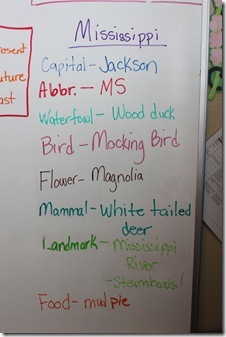 resent
uture
ast
Mississippi
Capital - Jackson
Abbr. - MS
Waterfowl - Wood duck
Bird - Mocking Bird
Flower - Magnolia
Mammal - White tailed
deer
Landmark - Mississippi
River
- Steamboats!
Food - mud pie